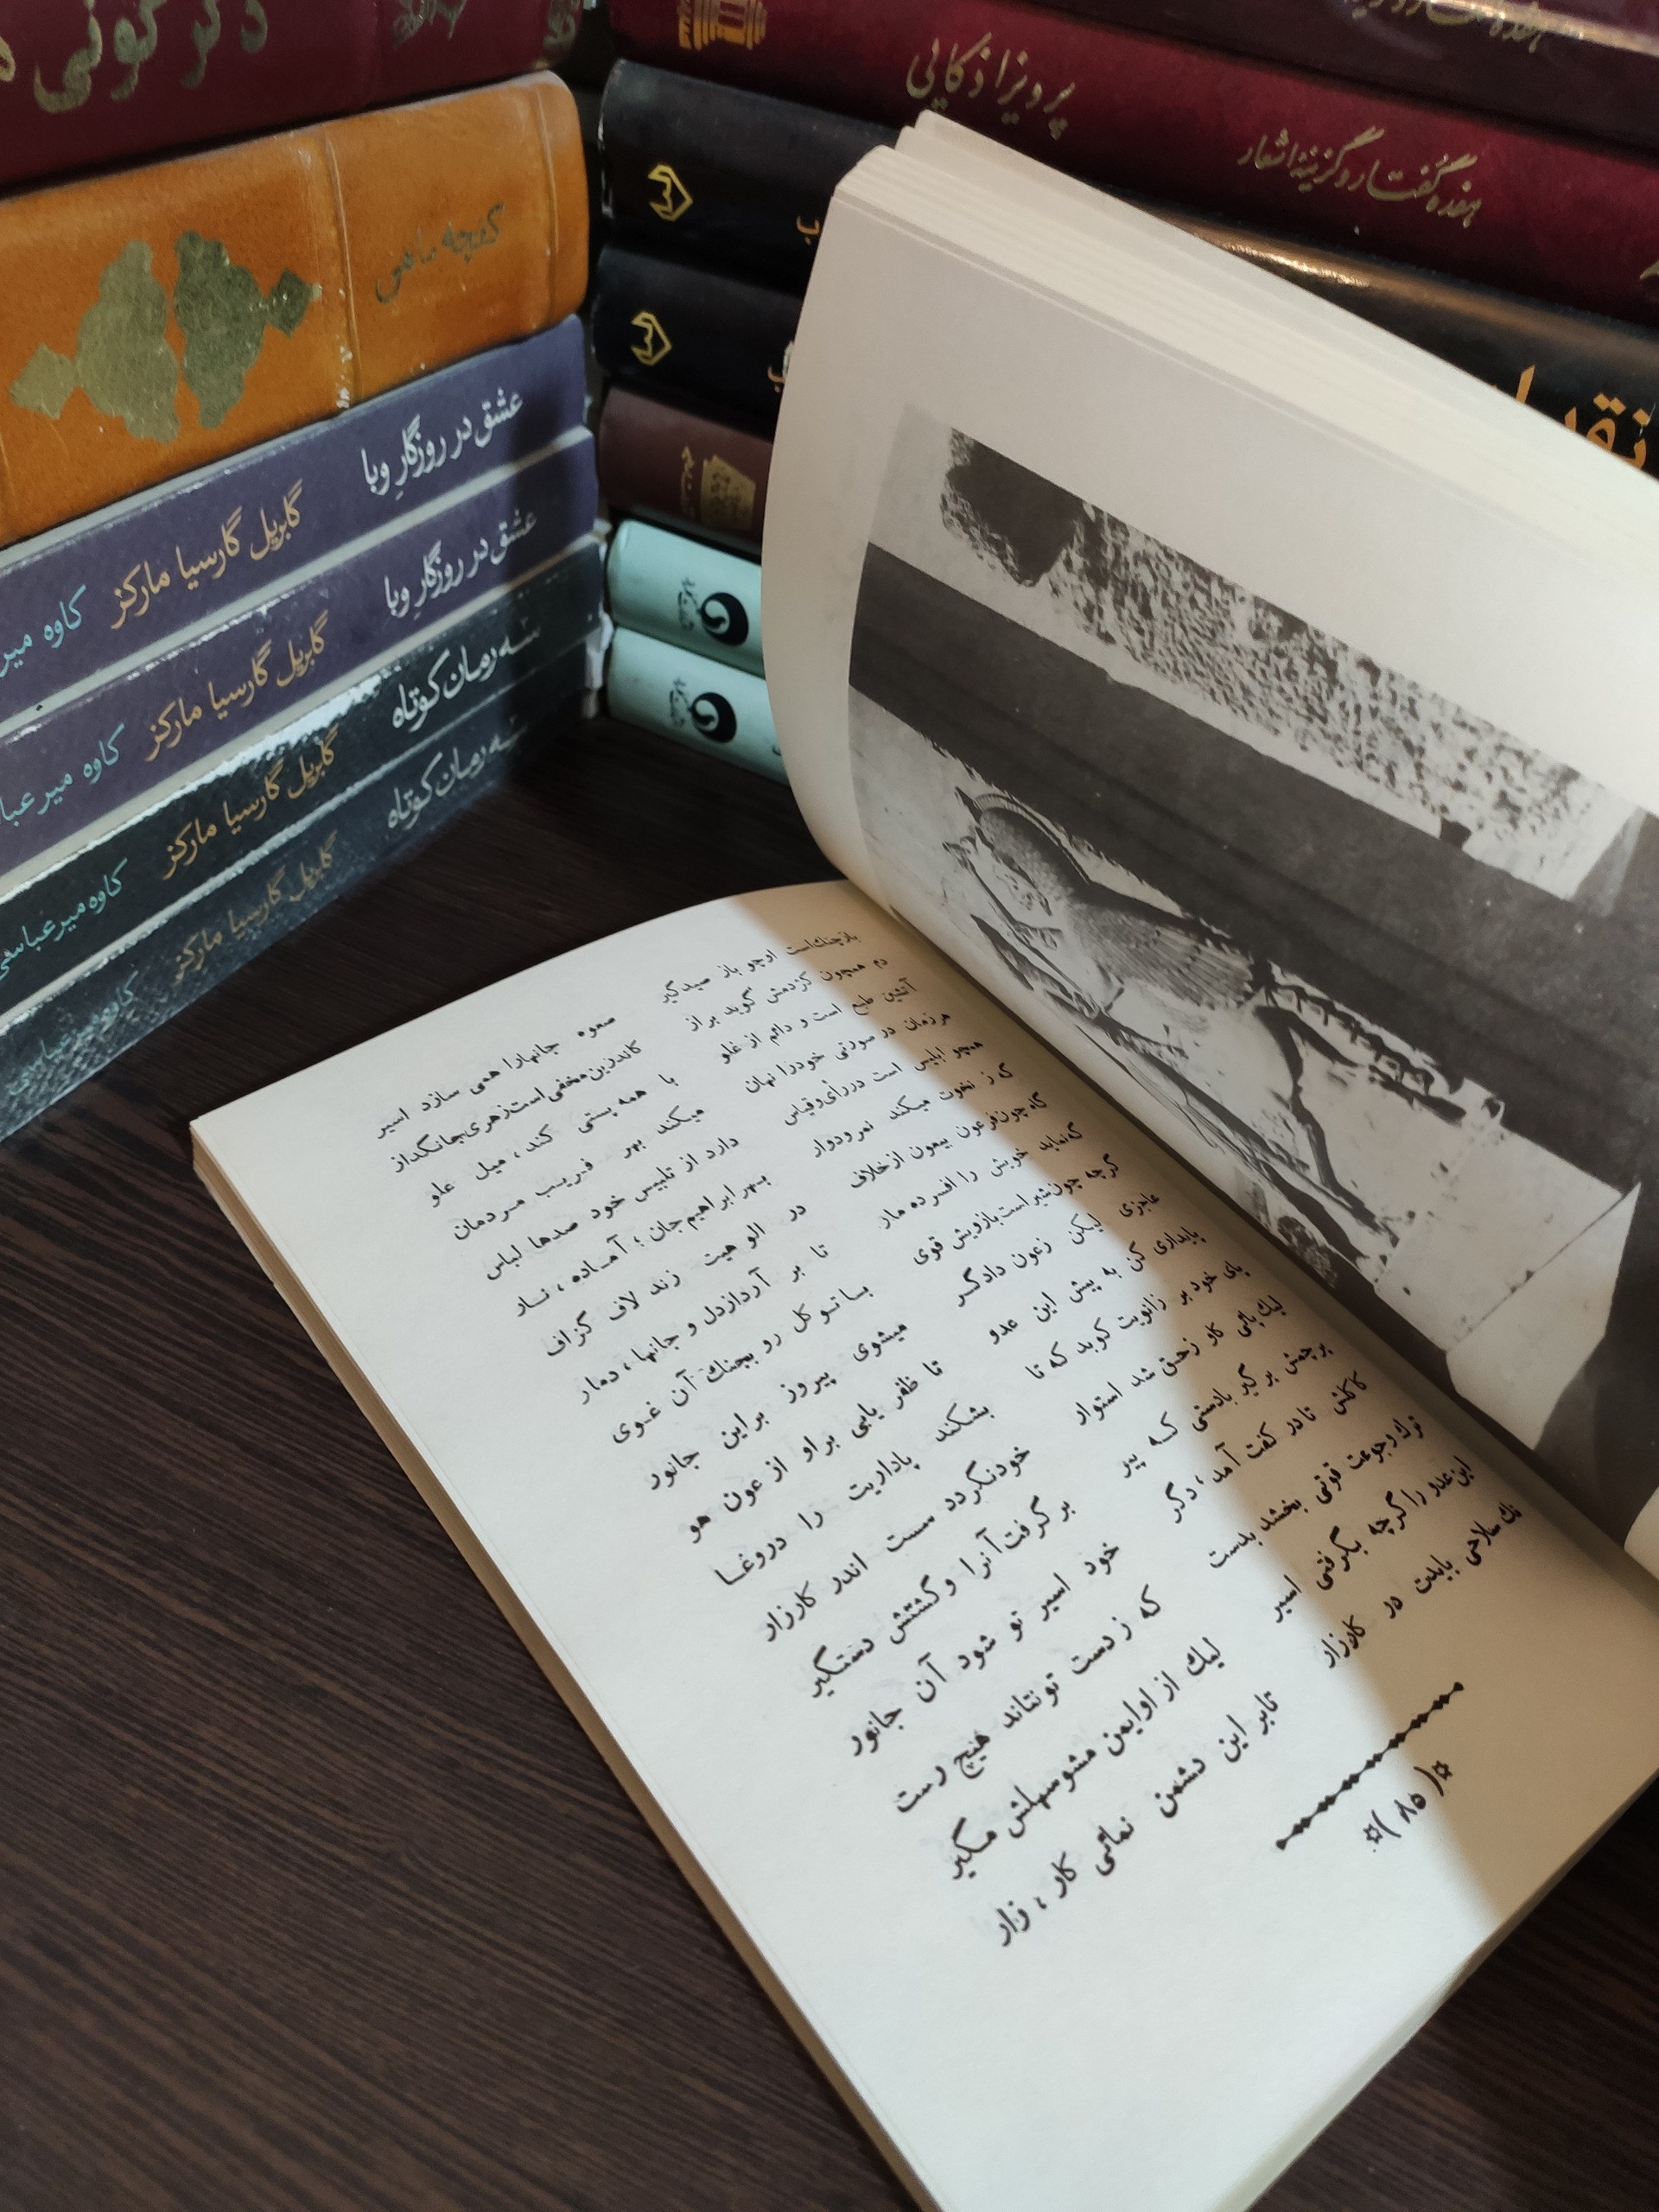 پرویز اذکایی
هفده گفتار و گزینه اشعار
کفچه ماهی
عشق در روزگارِ وبا
گابریل گارسیا مارکز
کاوه میر
عشق در روزگارِ وبا
گابریل گارسیا مارکز
کاوه میرعبا
سه رمان کوتاه
گابریل گارسیا مارکز
کاوه میرعباسی
سه رمان کوتاه
گابریل گارسیا مارکز
کاوه میرعباسی
باز چنگ است او چو باز صیدگیر صعوه جانها را همی سازد اسیر
دم همچون کژدمش گوید براز کاندرین مخفی است زهری جانگداز
آتشین طبع است و دائم از غلو با همه پستی کند، میل علو
هرزمان در صورتی خود را نهان میکند بهر فریب مردمان
همچو ابلیس است در رأی و قیاس دارد از تلبیس خود صدها لباس
که ز نخوت میکند نمرودوار بهر ابراهیم جان؛ آماده، نار
گاه چون فرعون بیعون از خلاف در الوهیت زند لاف گزاف
گه نماید خویش را افسرده مار تا بر آرد از دل و جانها، دمار
گرچه چون شیر است بازویش قوی با توکل رو بجنگ آن غوی
عاجزی لیکن زعون دادگر میشوی پیروز براین جانور
پایداری کن به پیش این عدو تا ظفر یابی براو از عون هو
پای خود بر زانویت کوبد که تا بشکند پاداریت را دروغا
لیک پائی کاو زحق شد استوار خودنگردد سست اندر کارزار
پرچمش بر گیر بادستی که پیر بر گرفت آنرا و گشتش دستگیر
کاکلش تا در کفت آمد، دگر خود اسیر تو شود آن جانور
ترک رجوعت قوتی بخشد بدست که ز دست تو نتاند هیچ رست
این عدو را گرچه بگرفتی اسیر لیک از او ایمن مشو سهلش مگیر
نک سلاحی بایدت در کارزار تابر این دشمن نمائی کار، زار
(۸۵)